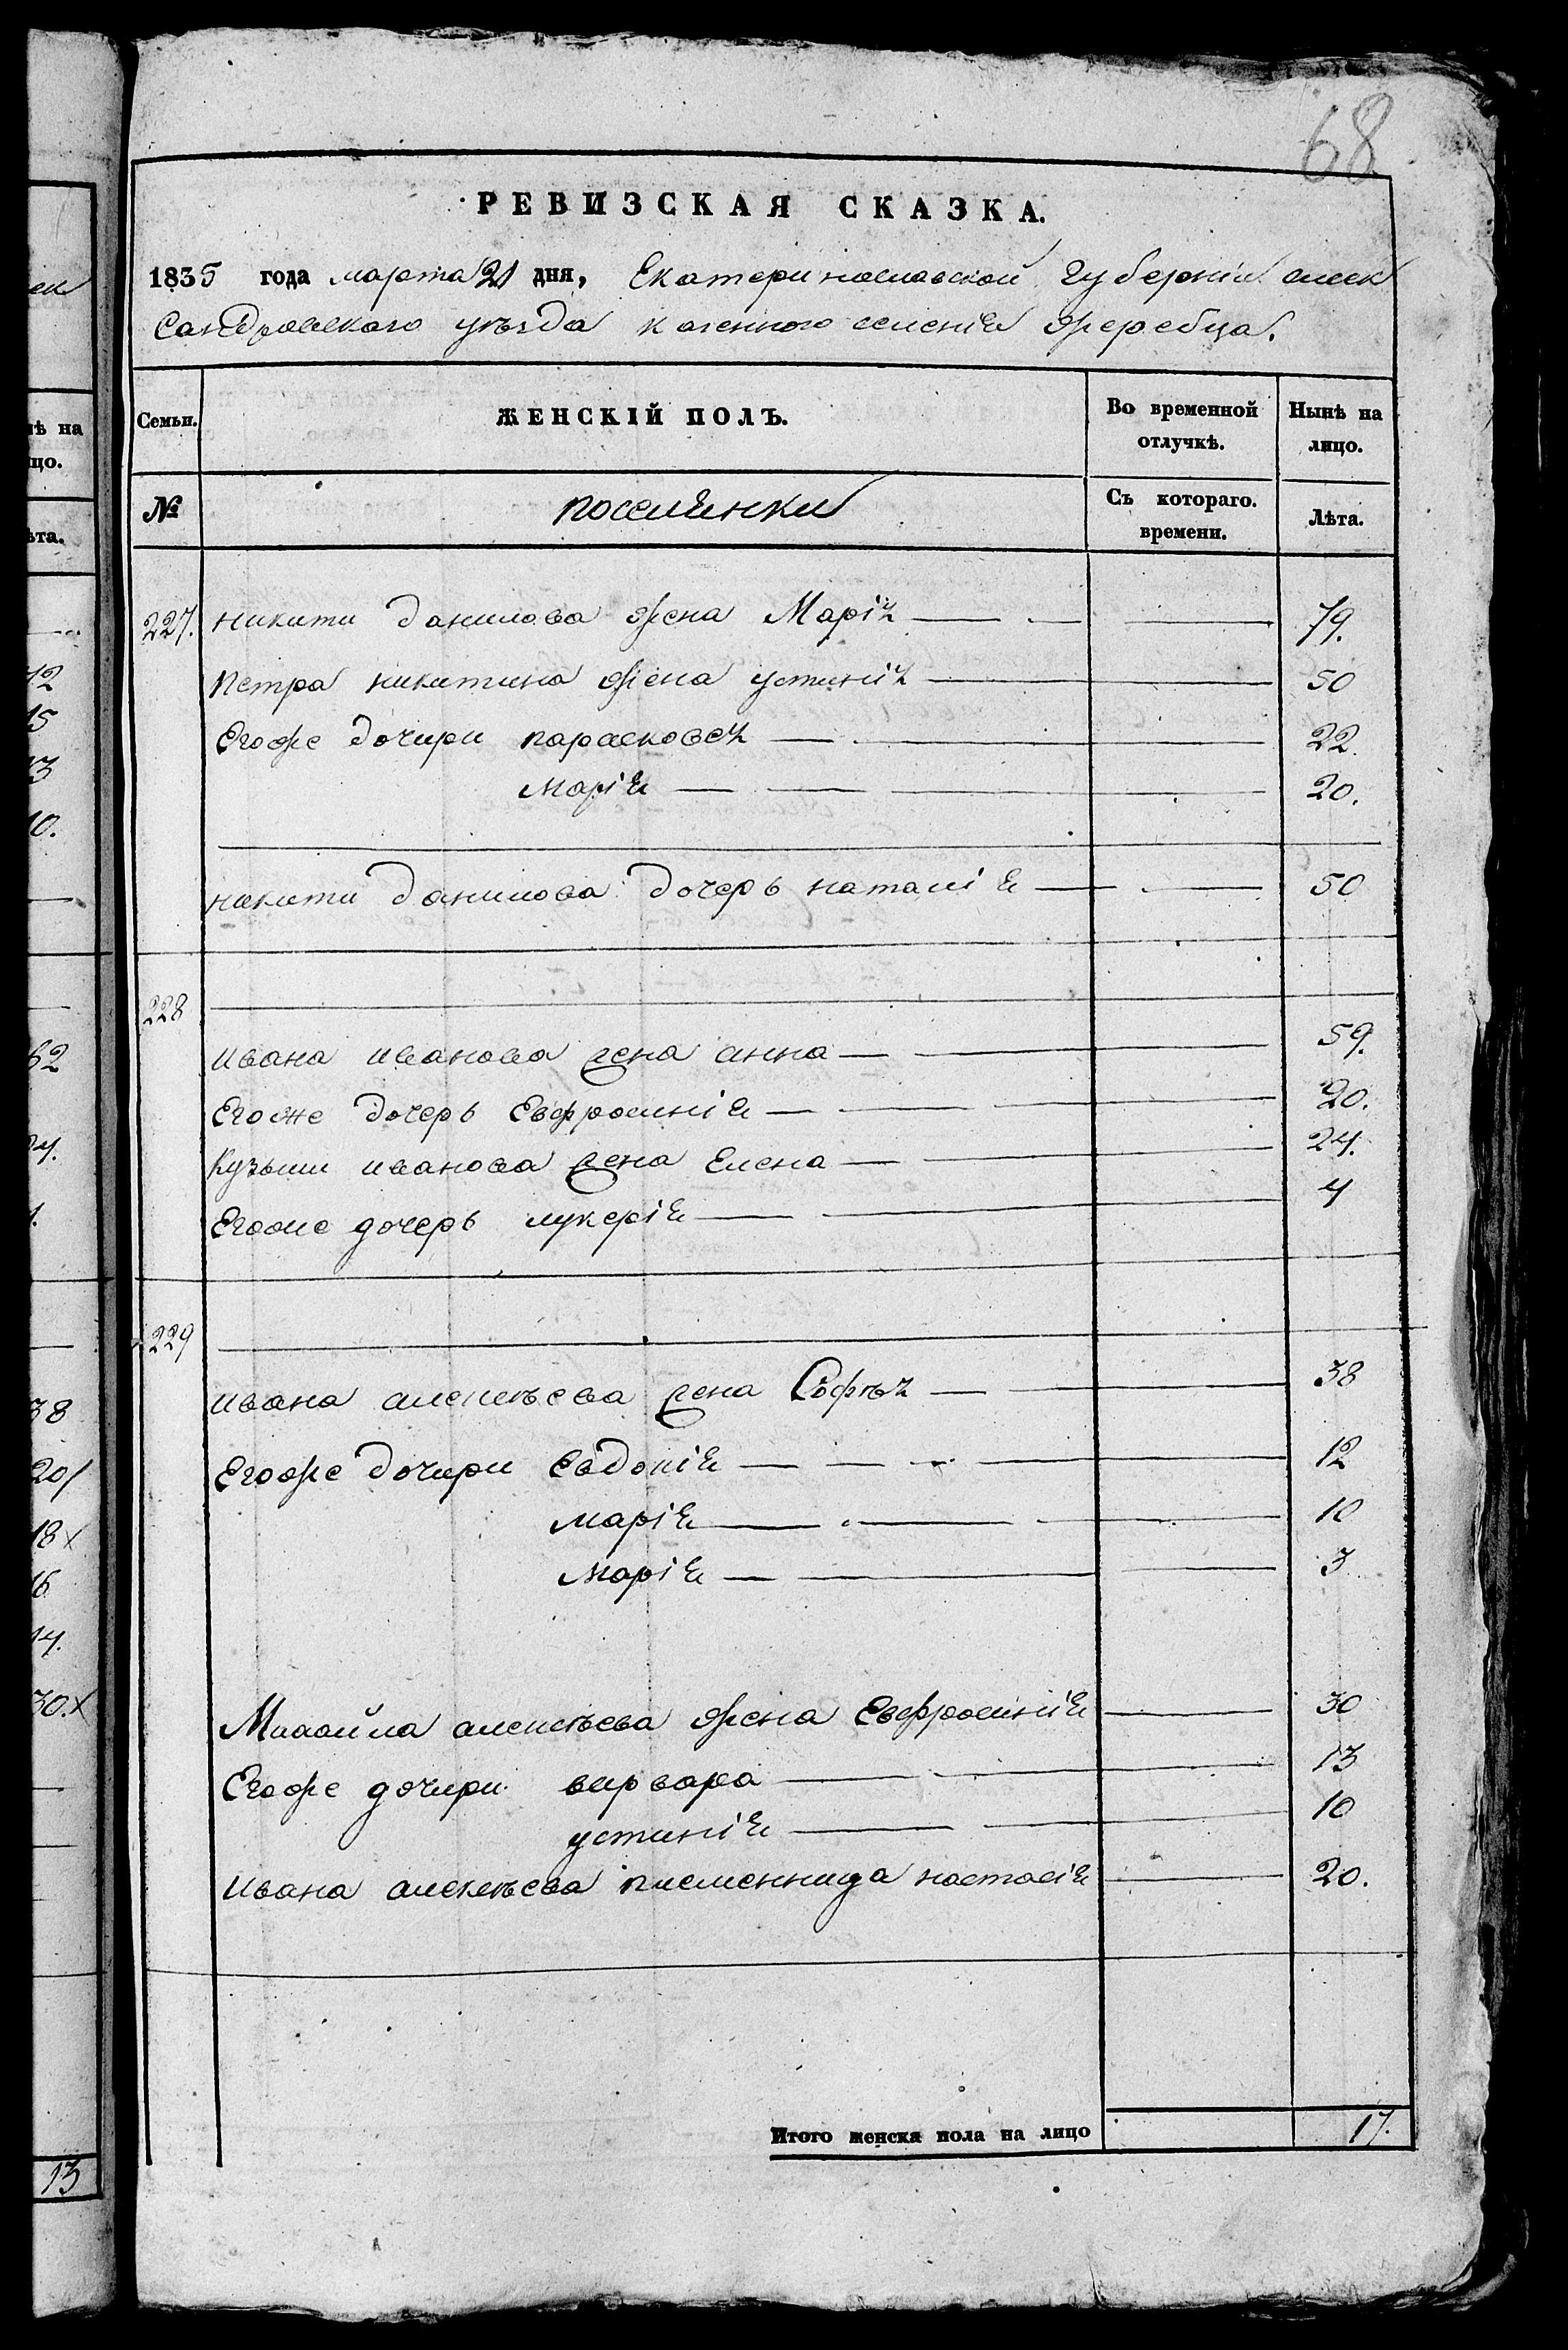 68
РЕВИЗСКАЯ СКАЗКА.
1835 года марта 21 дня, Екатеринославской губерніи алек
сандровского уѣзда казенного селенія жеребца.
Семьи. ЖЕНСКІЙ ПОЛЪ. Во временной отлучкѣ. Нынѣ на лицо.
№ поселянки Съ котораго. времени. Лѣта.
227. никити данилова жена Марія 79.
петра никитина жена устинія 50
Егоже дочири парасковея 22.
марія 20.
никити данилова дочерь наталія 50
228
ивана иванова жена анна 59.
Егоже дочерь Евфросинія 20.
Кузьми иванова жена Елена 24.
Егоже дочерь лукерія 4
229
ивана алексѣева жена Софѣя 38
Егоже дочири Евдокія 12
марія 10
марія 3
Михайла алексѣева жена Евфросинія 30
Егоже дочири варвара 13
устинія 10
ивана алексѣева племенница настасія 20.
Итого женска пола на лицо 17.
ѣ на
цо.
ѣта.
12
15
13
10.
62
24.
1.
38
20/
18 х
16
14.
30. х
13